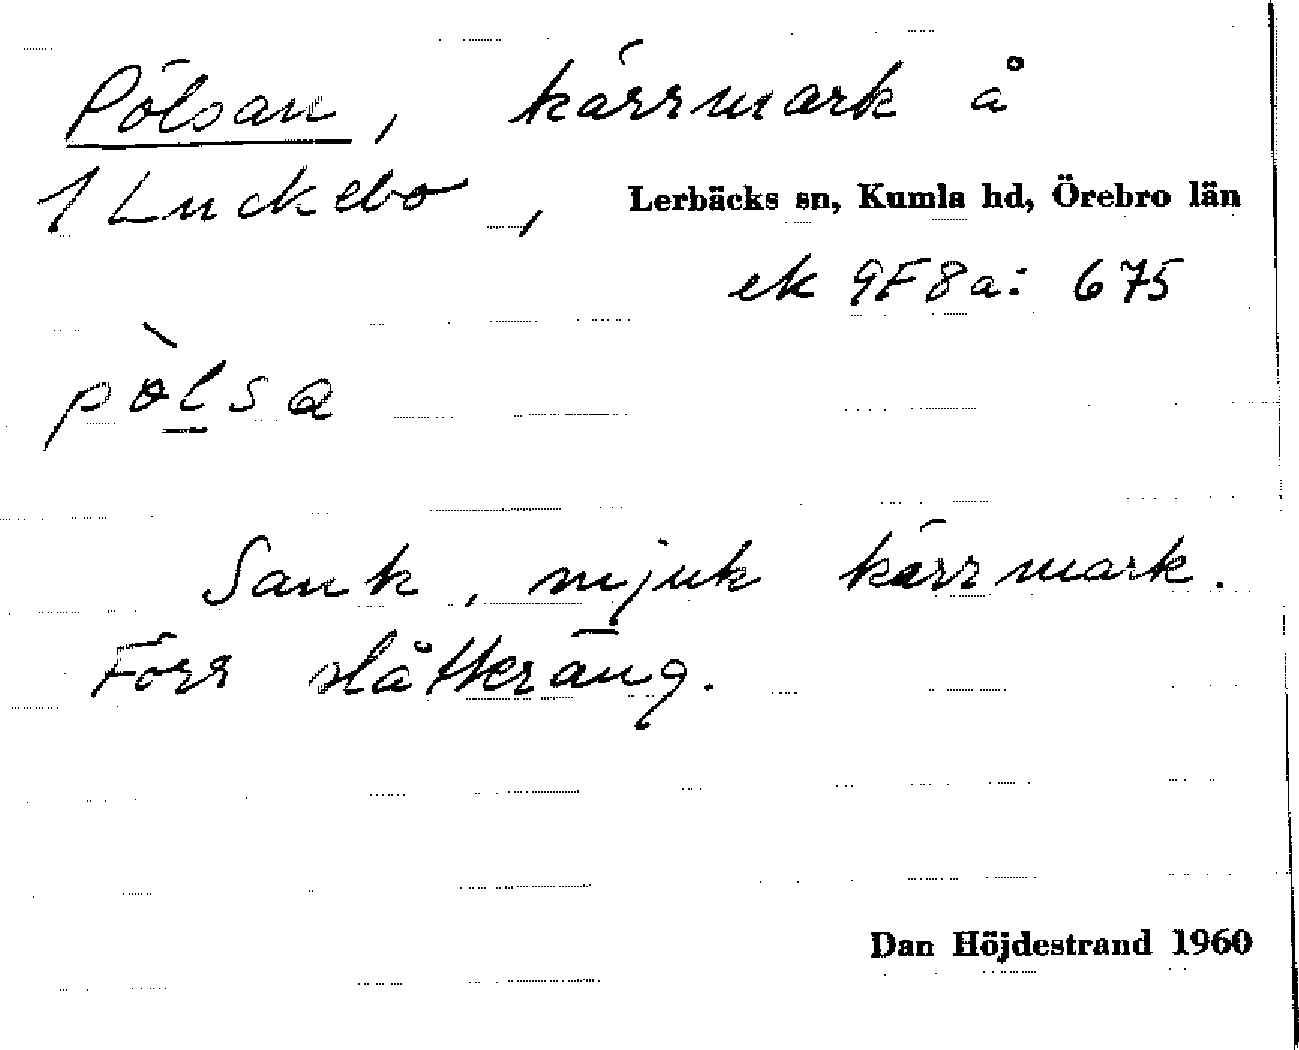 Pölsan, kärrmark å
1 Luckebo, Lerbäcks sn, Kumla hd, Örebro län
ek 9F8a: 675
pòlsa
Sank, mjuk kärrmark.
Förr slåtteräng.
Dan Höjdestrand 1960